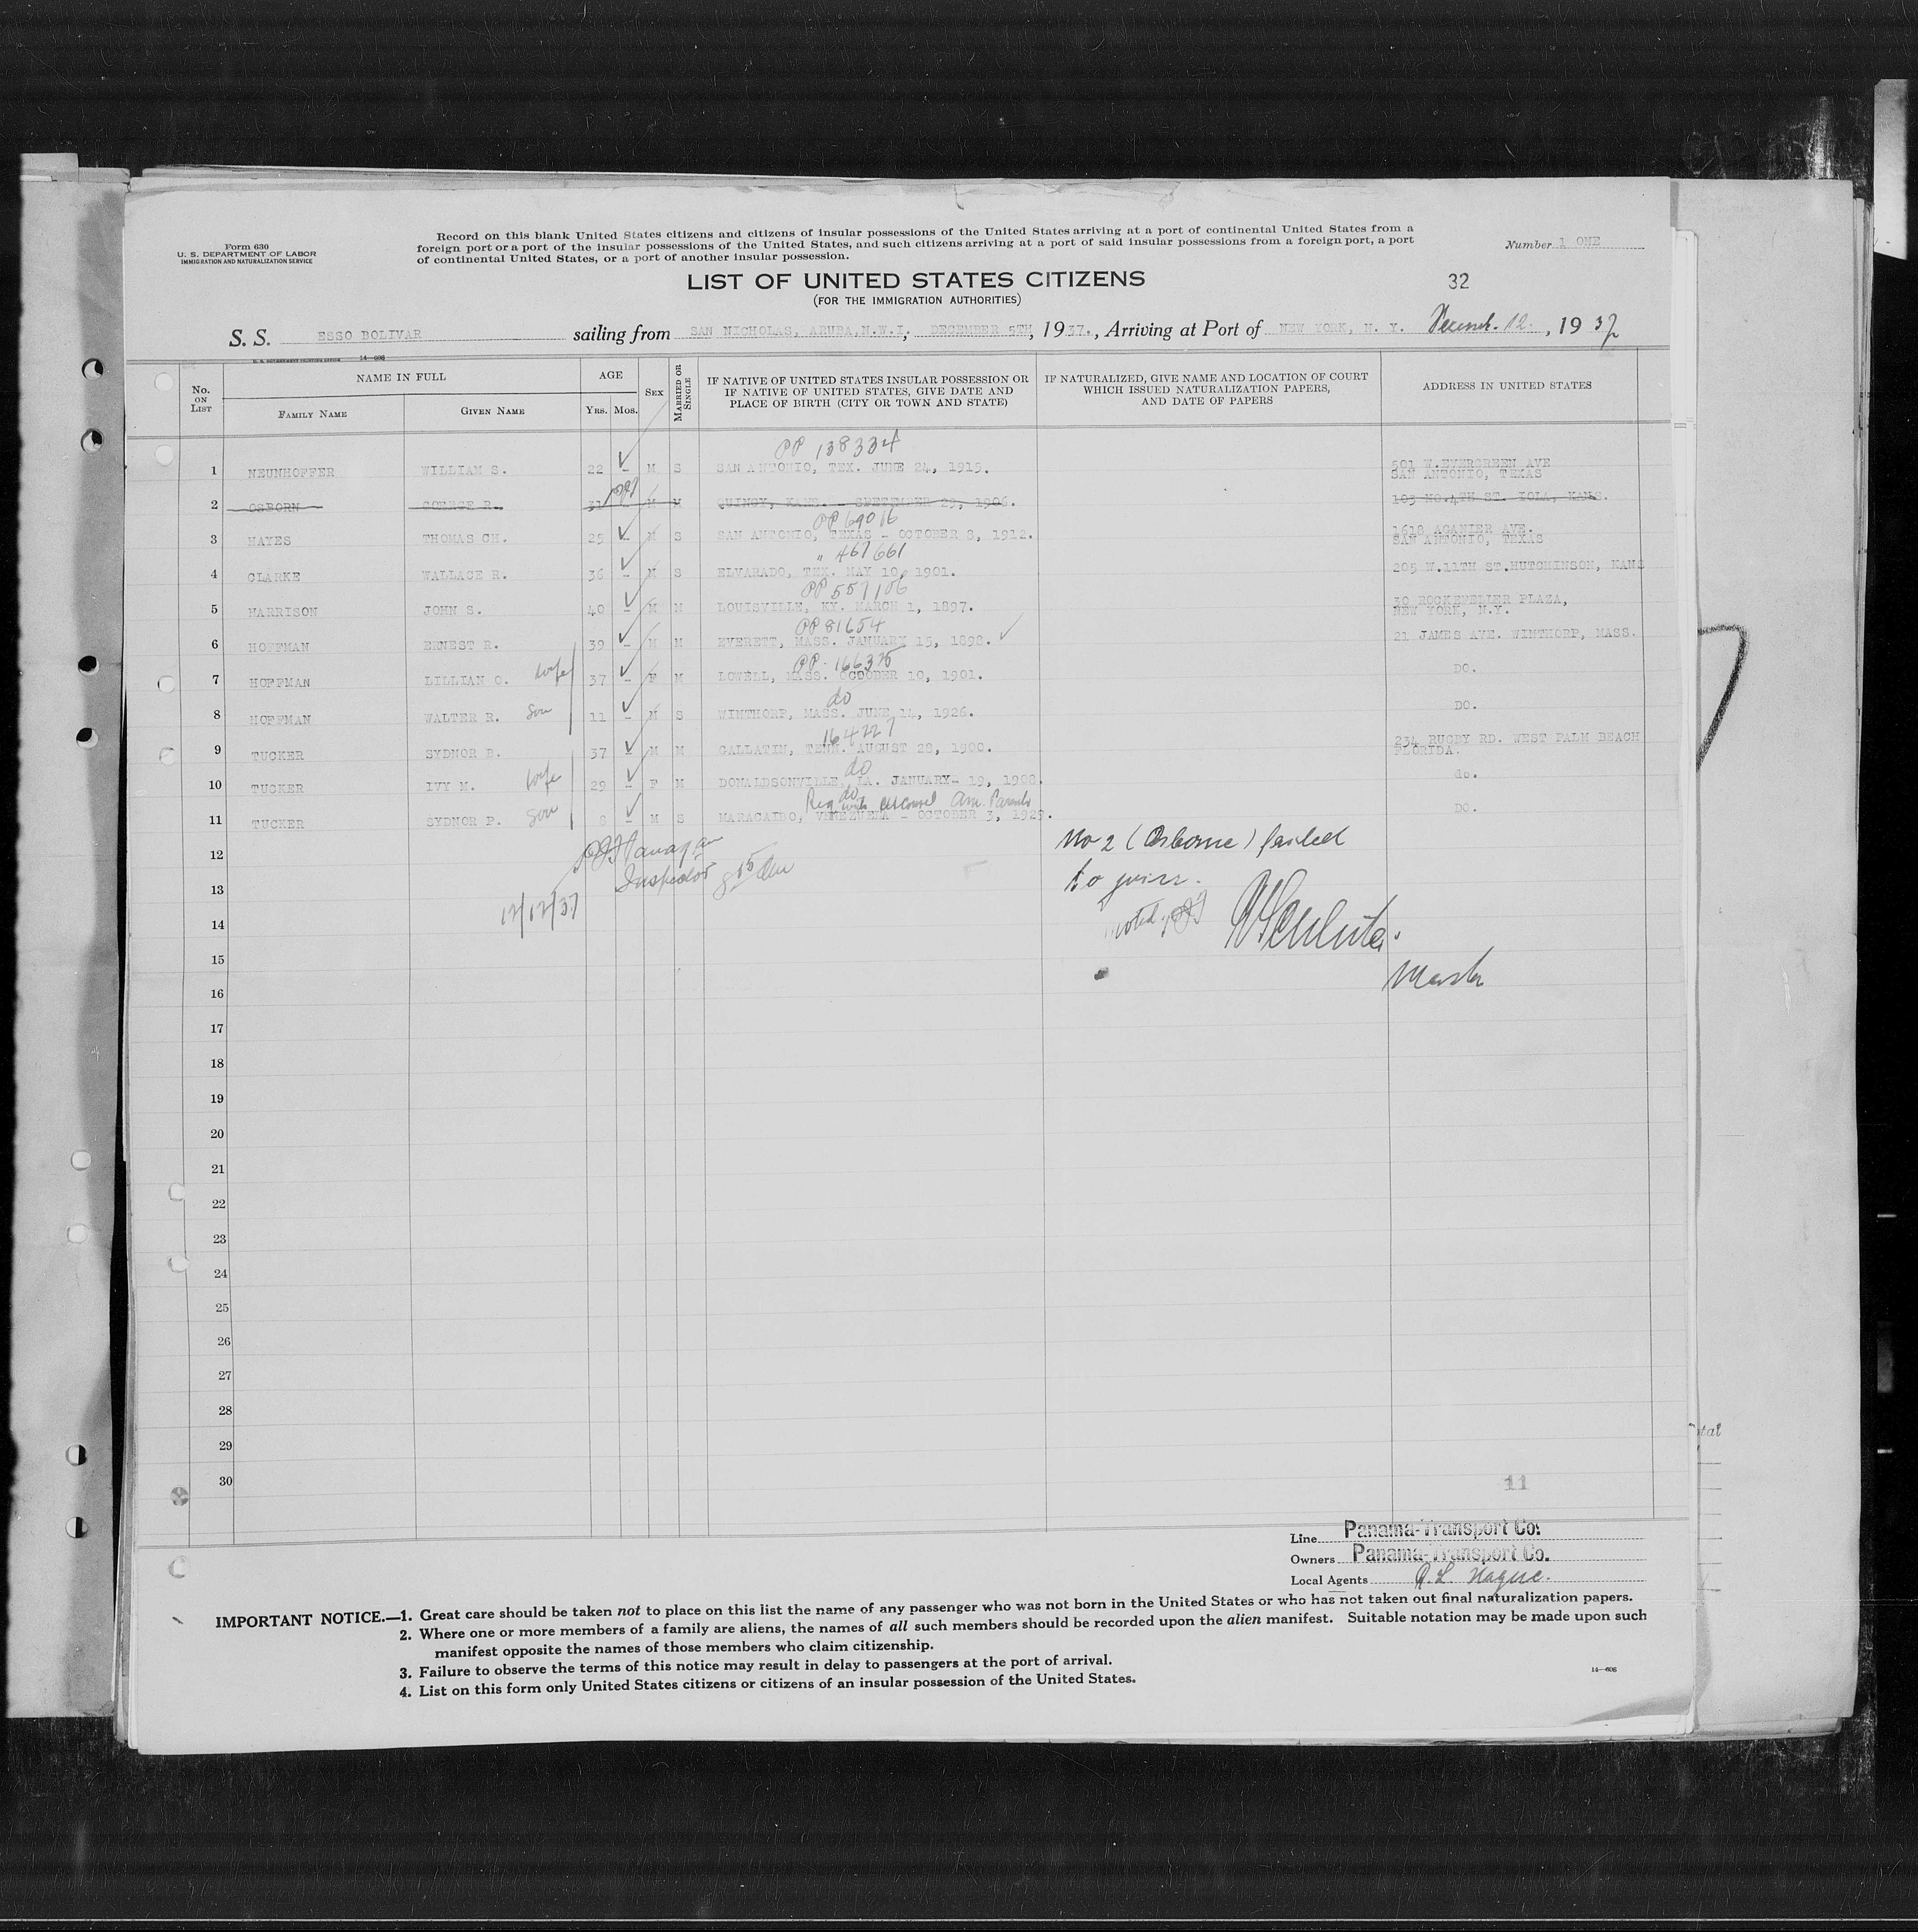 Form 630
U. S. DEPARTMENT OF LABOR
IMMIGRATION AND NATURALIZATION SERVICE
Record on this blank United States citizens and citizens of insular possessions of the United States arriving at a port of continental United States from a
foreign port or a port of the insular possessions of the United States, and such citizens arriving at a port of said insular possessions from a foreign port, a port
of continental United States, or a port of another insular possession.
Number 1 ONE
LIST OF UNITED STATES CITIZENS
(FOR THE IMMIGRATION AUTHORITIES)
32
S. S. ESSO BOLIVAR sailing from SAN NICHOLAS, ARUBA,N.W.I, DECEMBER 5TH, 1937., Arriving at Port of NEW YORK, N. Y. 12, 1937
U. S. GOVERNMENT PRINTING OFFICE 14—606
No. ON LIST
NAME IN FULL
FAMILY NAME
GIVEN NAME
AGE
YRS. MOS.
SEX
MARRIED OR SINGLE
IF NATIVE OF UNITED STATES INSULAR POSSESSION OR
IF NATIVE OF UNITED STATES, GIVE DATE AND
PLACE OF BIRTH (CITY OR TOWN AND STATE)
IF NATURALIZED, GIVE NAME AND LOCATION OF COURT
WHICH ISSUED NATURALIZATION PAPERS,
AND DATE OF PAPERS
ADDRESS IN UNITED STATES
PP 138334
1 NEUNHOFFER WILLIAM S. 22 – M S SAN ANTONIO, TEX. JUNE 24, 1915. 501 W.EVERGREEN AVE
SAN ANTONIO, TEXAS
2 OSBORN GEORGE R. 31 M M QUINCY, KANS. – SEPTEMBER 29, 1906. 103 NO.4TH ST. IOLA, KANS.
PP 69016
3 HAYES THOMAS CH. 25 – M S SAN ANTONIO, TEXAS – OCTOBER 8, 1912. 1618 AGANIER AVE.
SAN ANTONIO, TEXAS
" 467661
4 CLARKE WALLACE R. 36 – M S ELVARADO, TEX. MAY 10, 1901. 205 W.11TH ST.HUTCHINSON, KANS
PP 557106
5 HARRISON JOHN S. 40 – M M LOUISVILLE, KY. MARCH 1, 1897. 30 ROCKEFELLER PLAZA,
NEW YORK, N.Y.
PP 81654
6 HOFFMAN ERNEST R. 39 – M M EVERETT, MASS. JANUARY 15, 1898. 21 JAMES AVE. WINTHROP, MASS.
PP. 166375
7 HOFFMAN LILLIAN O. wife 37 – F M LOWELL, MASS. OCTOBER 10, 1901. DO.
do
8 HOFFMAN WALTER R. Son 11 – M S WINTHORP, MASS. JUNE 14, 1926. DO.
164227
9 TUCKER SYDNOR B. 37 – M M GALLATIN, TENN. AUGUST 28, 1900. 234 RUGBY RD. WEST PALM BEACH
FLORIDA.
do
10 TUCKER IVY M. wife 29 – F M DONALDSONVILLE, LA. JANUARY– 19, 1908. do.
do
Reg with Consul Am. Parents
11 TUCKER SYDNOR P. Son 8 – M S MARACAIBO, VENEZUELA – OCTOBER 3, 1929. DO.
12
Inspector 8 15 AM
12/12/37
No 2 (Osborne) failed
to join.
noted.
Master
13
14
15
16
17
18
19
20
21
22
23
24
25
26
27
28
29
30
11
Line Panama-Transport Co.
Owners Panama-Transport Co.
Local Agents R. L. Hague.
IMPORTANT NOTICE.—1. Great care should be taken not to place on this list the name of any passenger who was not born in the United States or who has not taken out final naturalization papers.
2. Where one or more members of a family are aliens, the names of all such members should be recorded upon the alien manifest. Suitable notation may be made upon such
manifest opposite the names of those members who claim citizenship.
3. Failure to observe the terms of this notice may result in delay to passengers at the port of arrival.
4. List on this form only United States citizens or citizens of an insular possession of the United States.
14—606